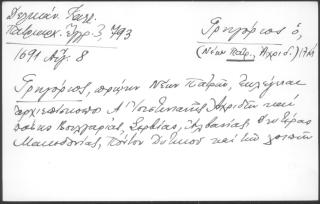 Δελικάν. Καλλ.
Πατριαρχ. Ἔγγρ. 3, 793
1691 Αὔγ. 8
Γρηγόριος ὁ,
(Νέων Πατρ., Ἀχριδ.)
Γρηγόριος, πρώην Νέων Πατρῶν, ἐκλέγεται
ἀρχιεπίσκοπος Α Ἰουστινιανῆς Ἀχριδῶν καὶ
πάσης Βουλγαρίας, Σερβίας, Ἀλβανίας, Δευτέρας
Μακεδονίας, Πόντου Δυτικοῦ καὶ τῶν λοιπῶν